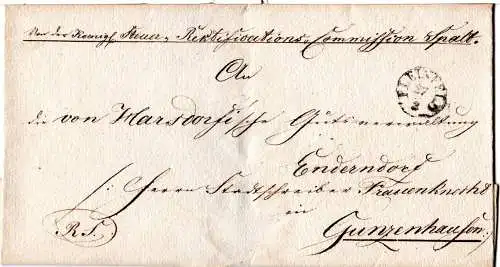 Von der Koenigl. Steuer-Rektifications-Commission Spalt.
An
PLEINFELD
27
2
die von Harsdorfische Gutsverwaltung
Enderndorf
/: Herrn Stadtschreiber Frauenknecht
in
R. S.
Gunzenhausen :/